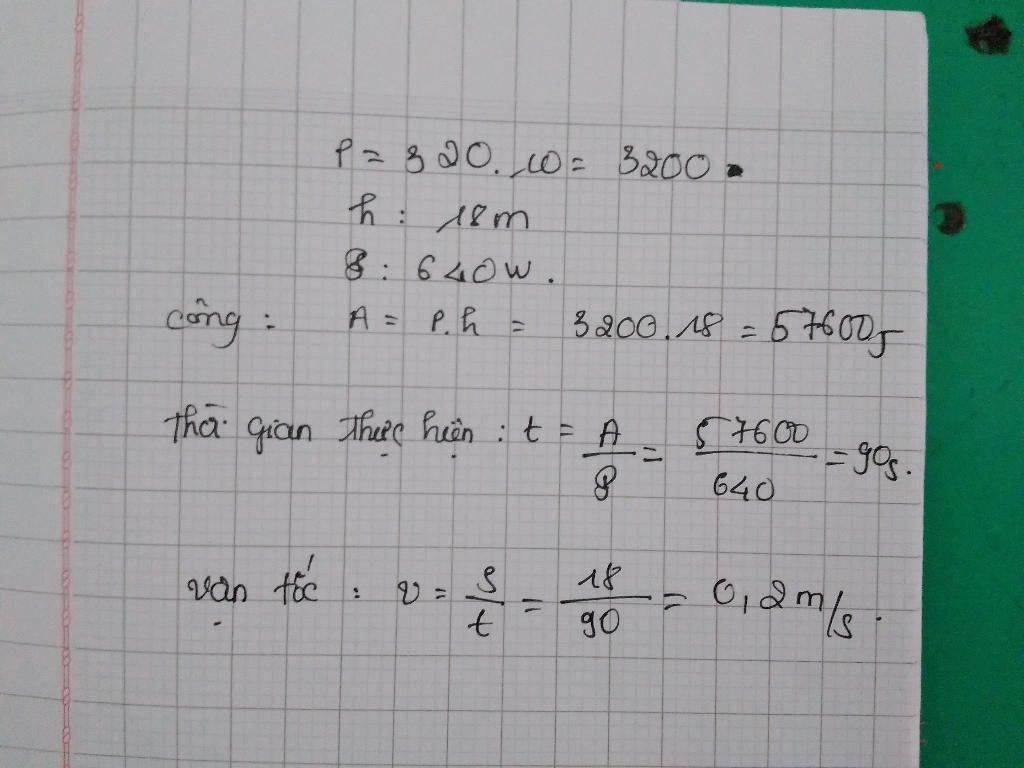 P = 320.10 = 3200
h : 18m
P : 640W.
Công : A = P.h = 3200.18 = 57600J
Thời gian thực hiện : t = A/P = 57600/640 = 90s.
Vận tốc : v = S/t = 18/90 = 0,2m/s.